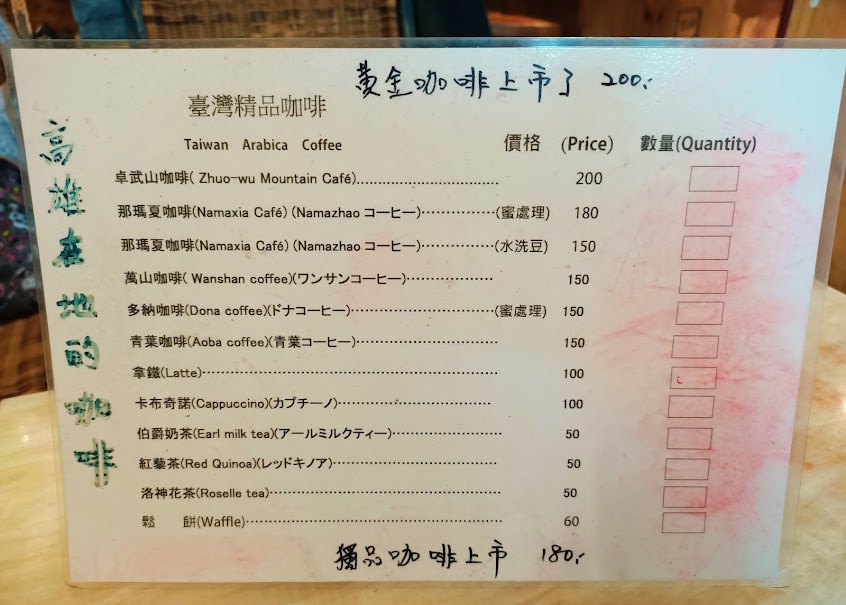 黃金咖啡上市了 200.-
臺灣精品咖啡
高雄在地的咖啡
Taiwan Arabica Coffee 價格 (Price) 數量(Quantity)
卓武山咖啡( Zhuo-wu Mountain Café)................................... 200
那瑪夏咖啡(Namaxia Café) (Namazhao コーヒー)···············(蜜處理) 180
那瑪夏咖啡(Namaxia Café) (Namazhao コーヒー)···············(水洗豆) 150
萬山咖啡( Wanshan coffee)(ワンサンコーヒー)·················· 150
多納咖啡(Dona coffee)(ドナコーヒー)······························(蜜處理) 150
青葉咖啡(Aoba coffee)(青葉コーヒー)····························· 150
拿鐵(Latte)······························································ 100
卡布奇諾(Cappuccino)(カプチーノ)································ 100
伯爵奶茶(Earl milk tea)(アールミルクティー)······················ 50
紅藜茶(Red Quinoa)(レッドキノア)·································· 50
洛神花茶(Roselle tea)················································ 50
鬆 餅(Waffle)······················································ 60
獨品咖啡上市 180.-